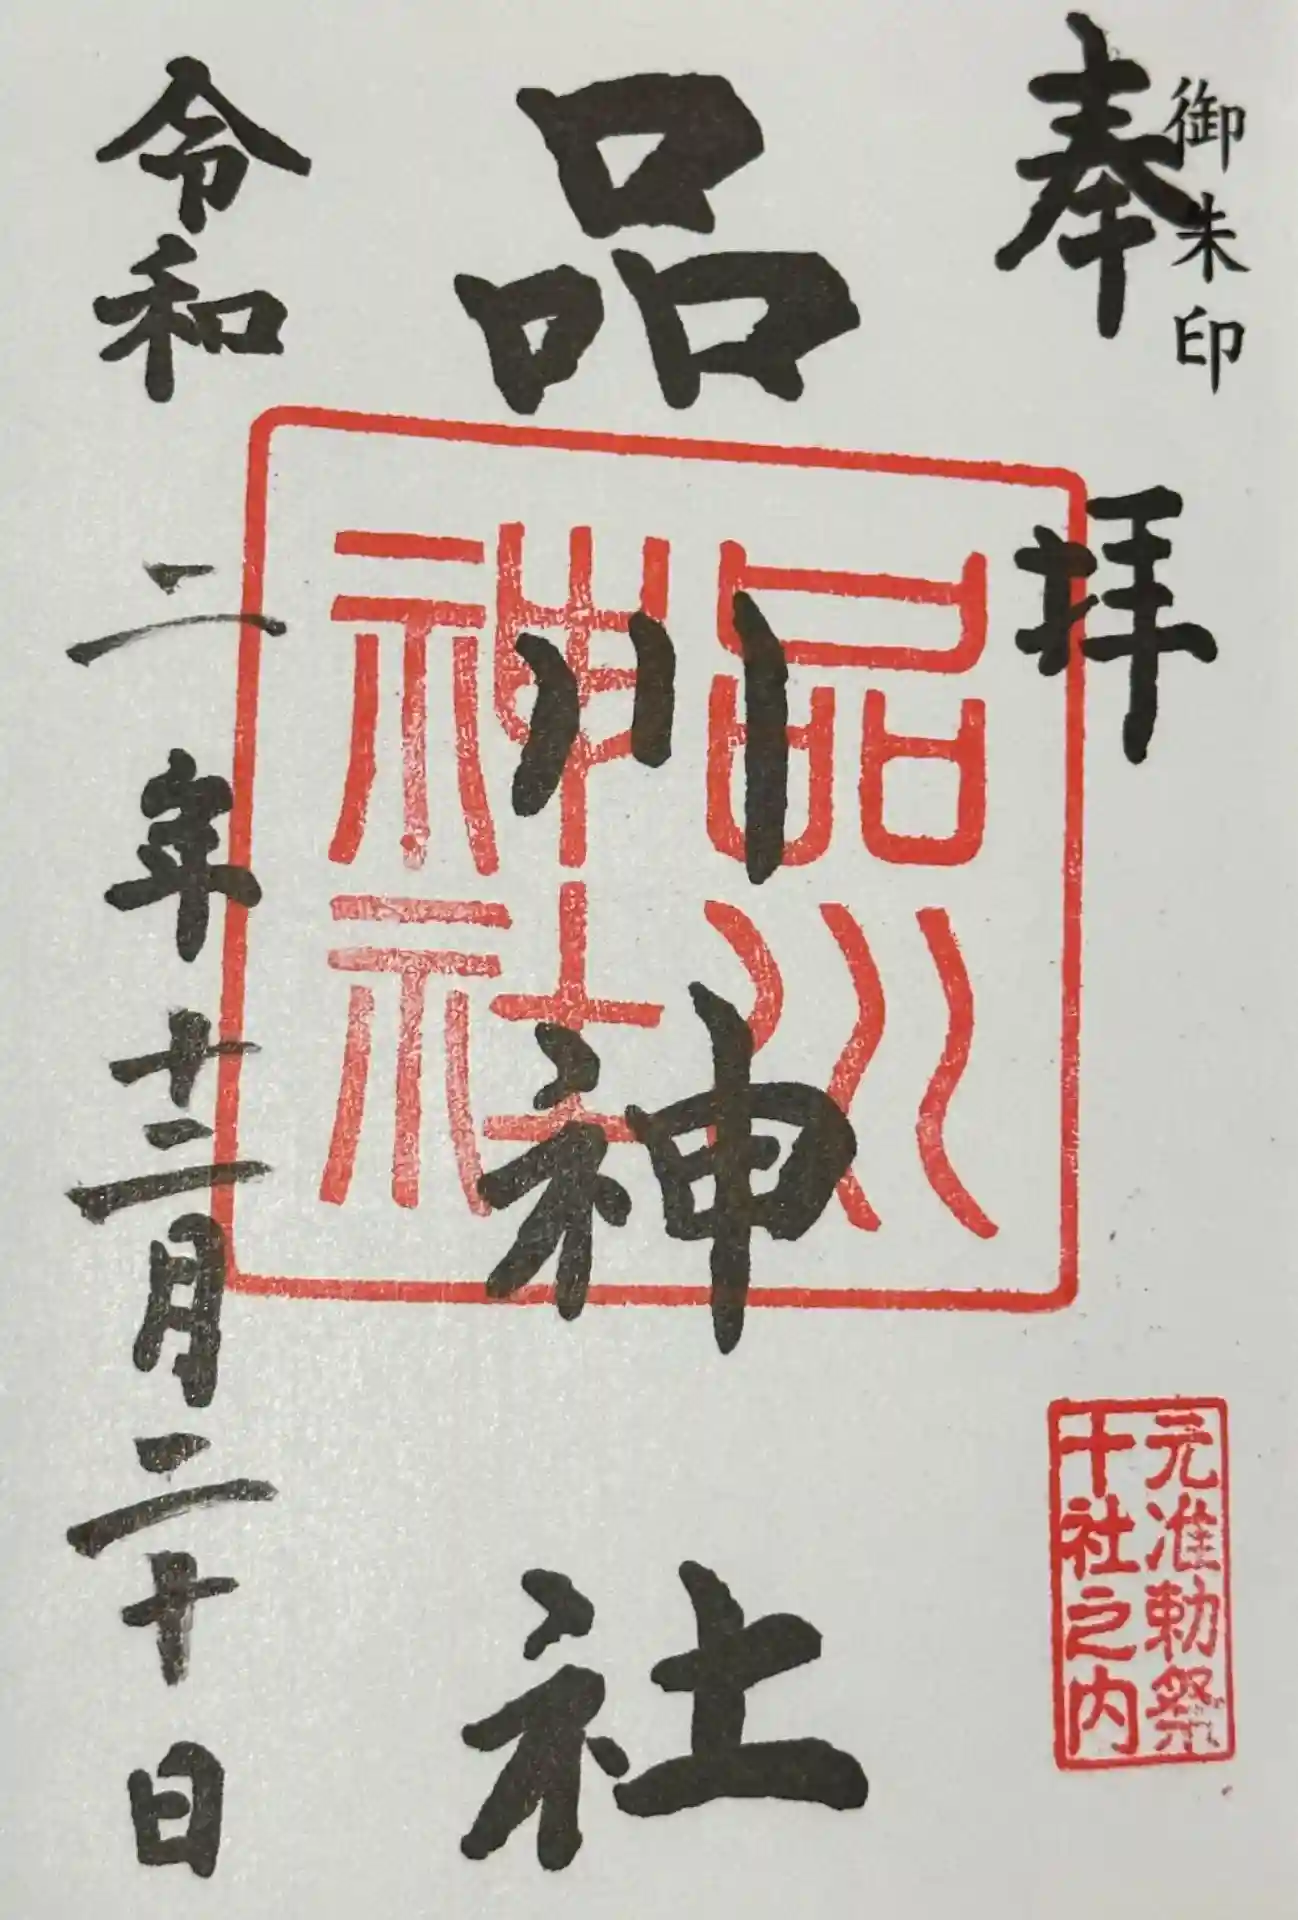 御朱印
奉拝
品川神社
品川
神社
元准勅祭
十社之内
令和二年十二月二十日